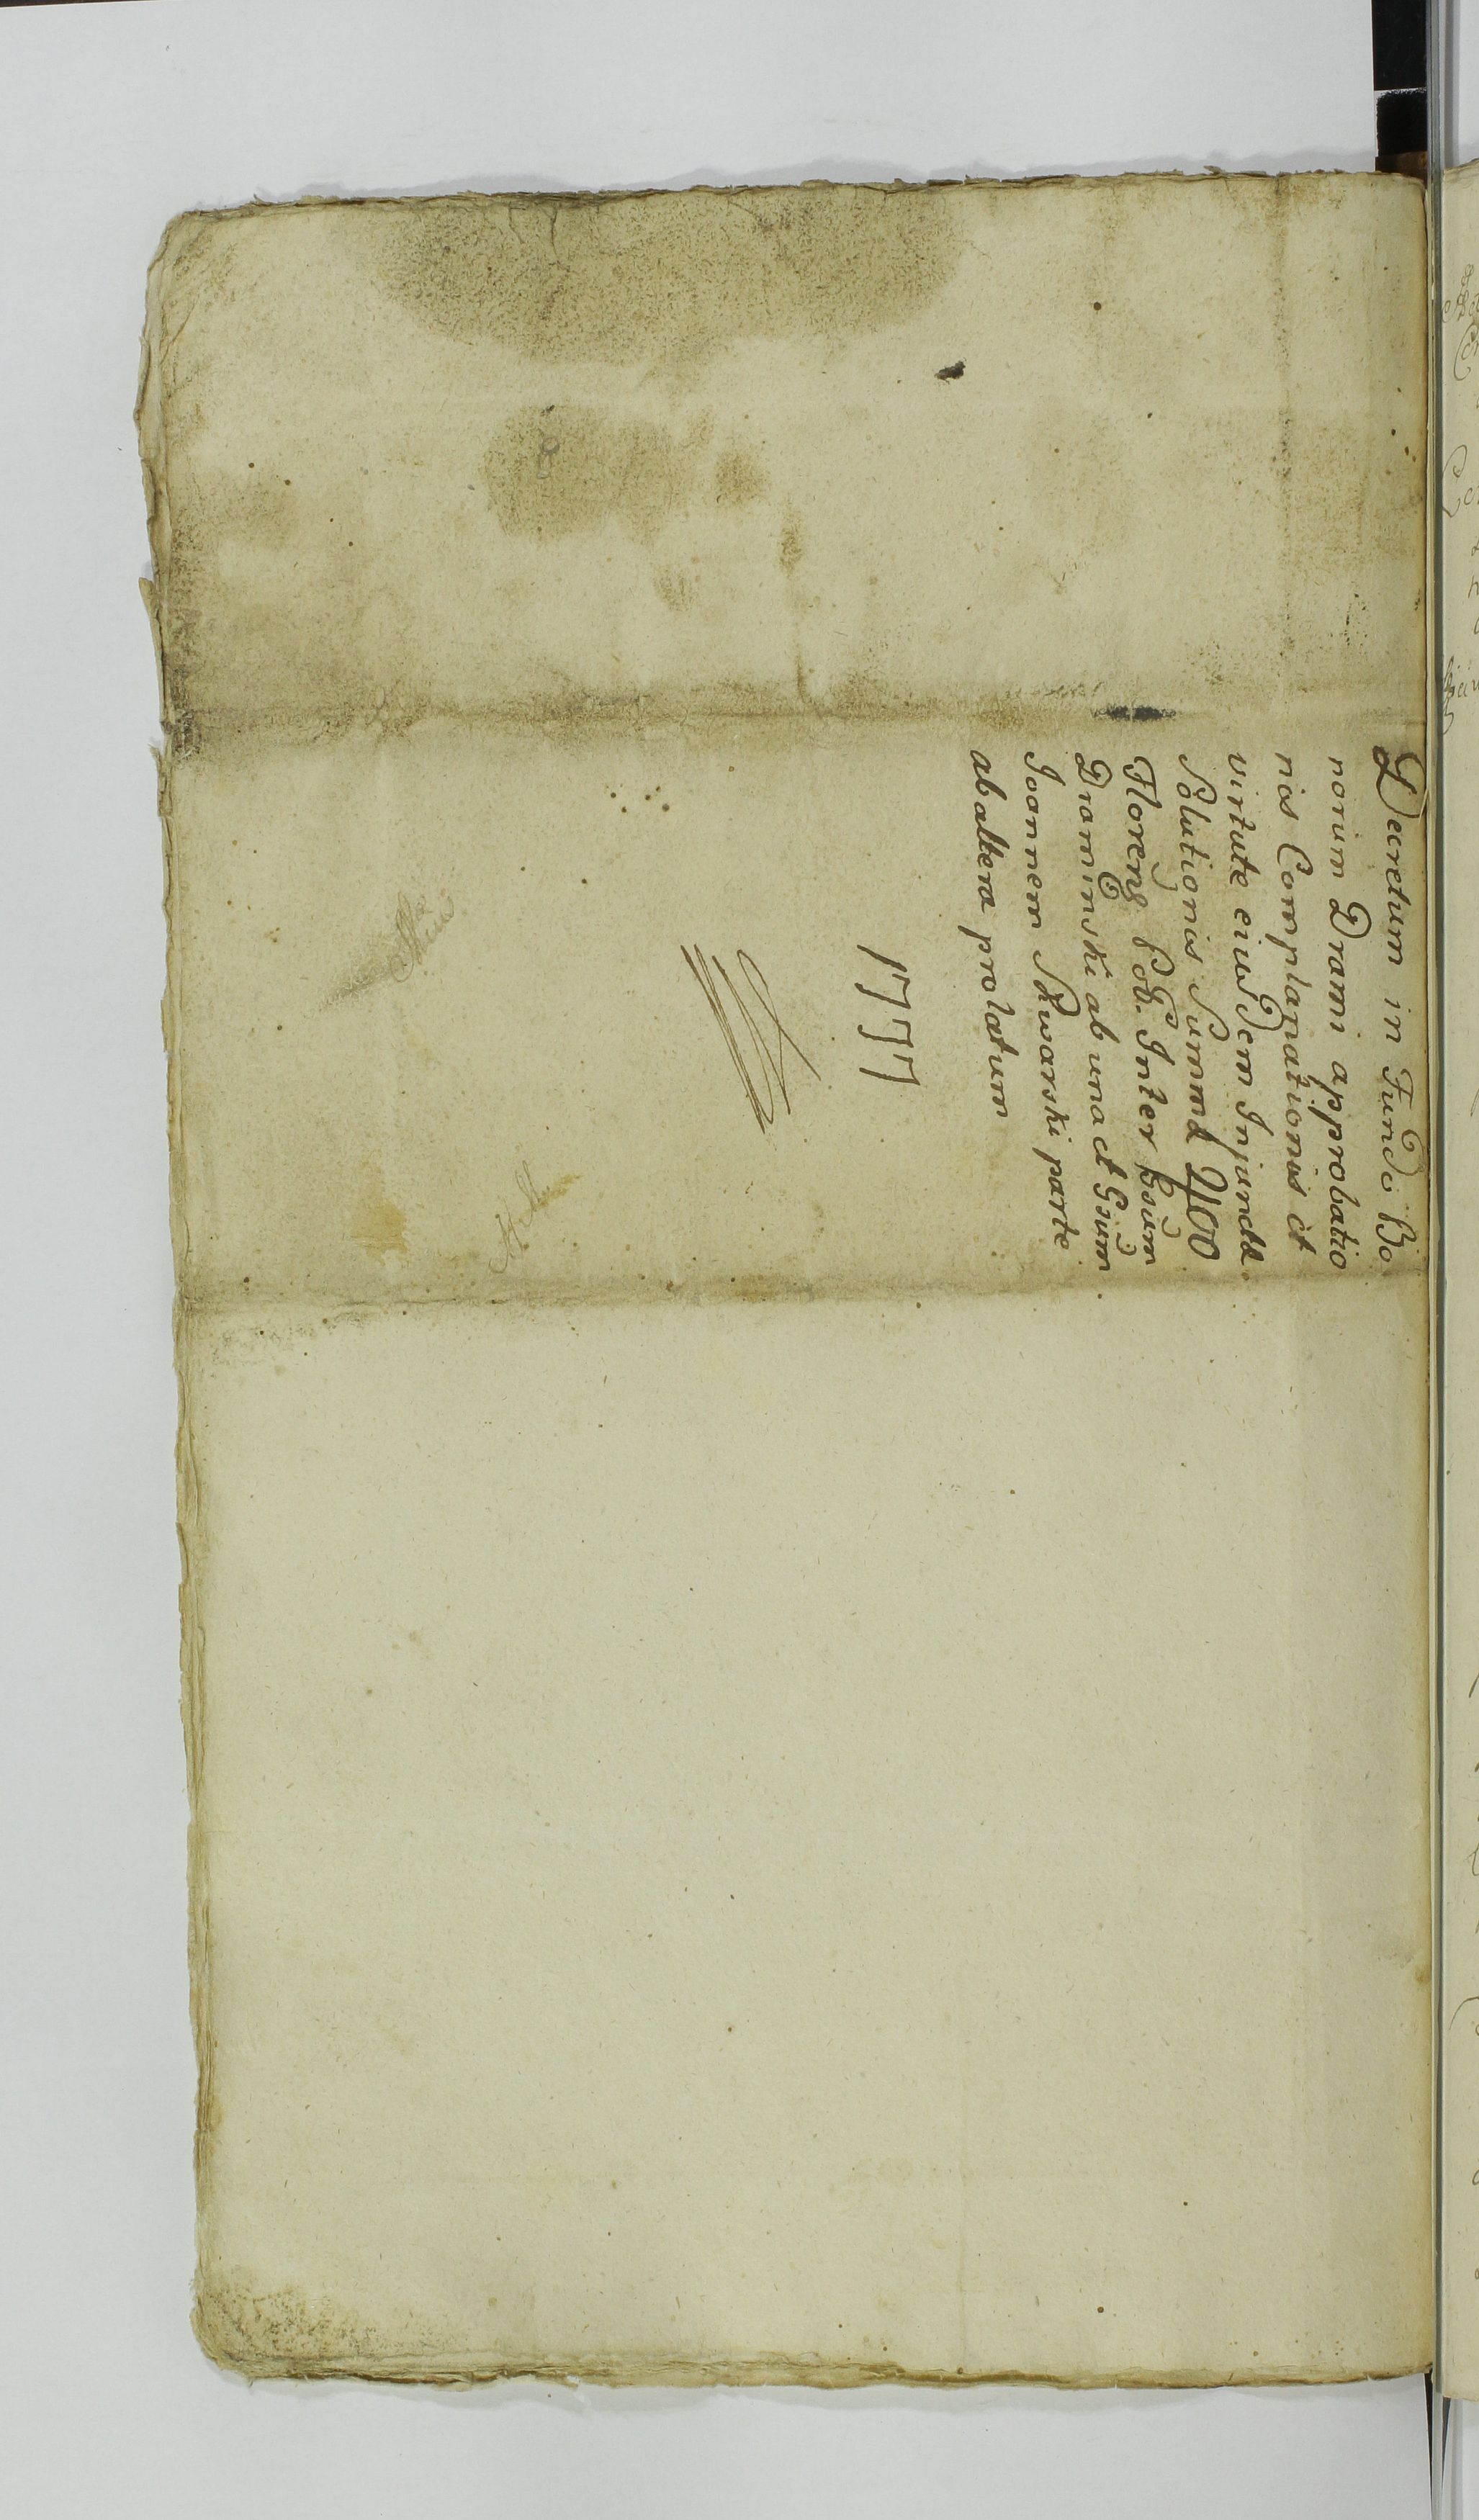 Decretum in Fundo Bo
norum Drami approbatio
nis Complanationis et
virtute eiusdem Injunctæ
Solutionis Summæ 2400
Floreng Pol. Inter Gsum
Draminski ab una et Gsum
Joannem Skwarski parte
ab altera prolatum
1777